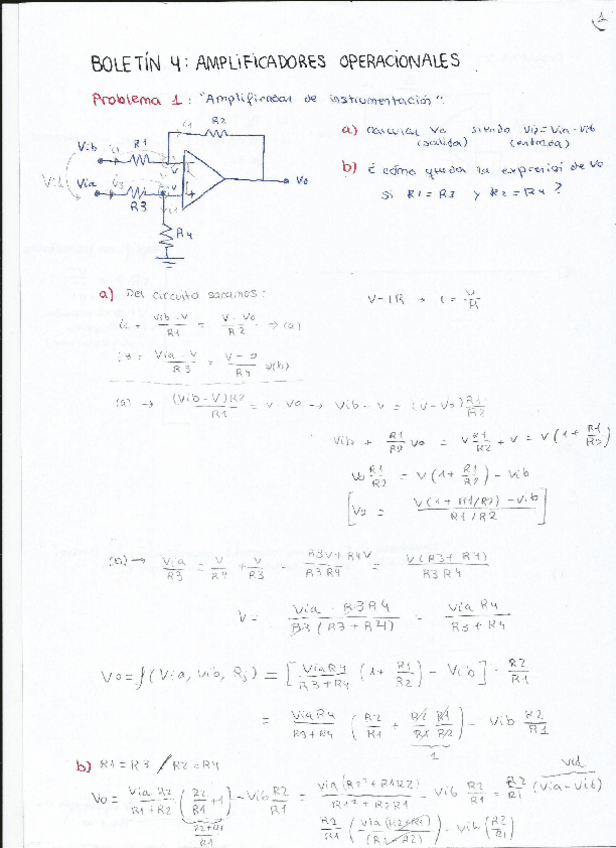 1
BOLETÍN 4: AMPLIFICADORES OPERACIONALES
Problema 1: "Amplificador de instrumentación":
a) Calcular Vo siendo Vid = Via - Vib
(salida) (entrada)
b) ¿cómo queda la expresión de Vo
si R1 = R3 y R2 = R4?
Vib
R1
R2
Vid
Via
R3
R4
Vo
a) Del circuito sacamos:
V = IR → i = V/R
i1 = (Vib - V)/R1 = (V - Vo)/R2 → (a)
i3 = (Via - V)/R3 = (V - 0)/R4 → (b)
(a) → (Vib - V)R2/R1 = V - Vo → Vib - V = (V - Vo) R1/R2
Vib + R1/R2 Vo = V R1/R2 + V = V(1 + R1/R2)
Vo R1/R2 = V(1 + R1/R2) - Vib
[Vo = (V(1 + R1/R2) - Vib)/(R1/R2)]
(b) → Via/R3 = V/R4 + V/R3 = (R3V + R4V)/(R3R4) = V(R3 + R4)/(R3R4)
V = Via · R3R4/(R3(R3 + R4)) = ViaR4/(R3 + R4)
Vo = f(Via, Vib, Rj) = [ViaR4/(R3+R4) (1 + R1/R2) - Vib] · R2/R1
= ViaR4/(R3+R4) (R2/R1 + R2/R1 R1/R2) - Vib R2/R1
1
b) R1 = R3 / R2 = R4
Vid
Vo = Via R2/(R1 + R2) (R2/R1 + 1) - Vib R2/R1 = Via(R2² + R1R2)/(R1² + R2R1) - Vib R2/R1 = R2/R1 (Via - Vib)
(R2+R1)/R1
R2/R1 (Via(R2+R1)/(R1+R2)) - Vib (R2/R1)